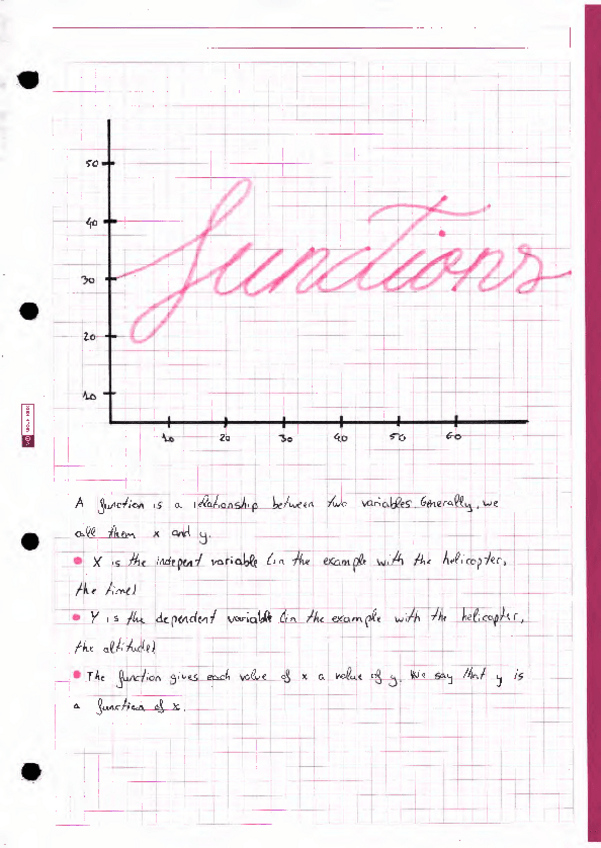 50
40
30
20
10
functions
10 20 30 40 50 60
A function is a relationship between two variables. Generally, we
call them x and y.
X is the indepent variable (in the example with the helicopter,
the time)
Y is the dependent variable (in the example with the helicopter,
the altitude)
The function gives each value of x a value of y. We say that y is
a function of x.